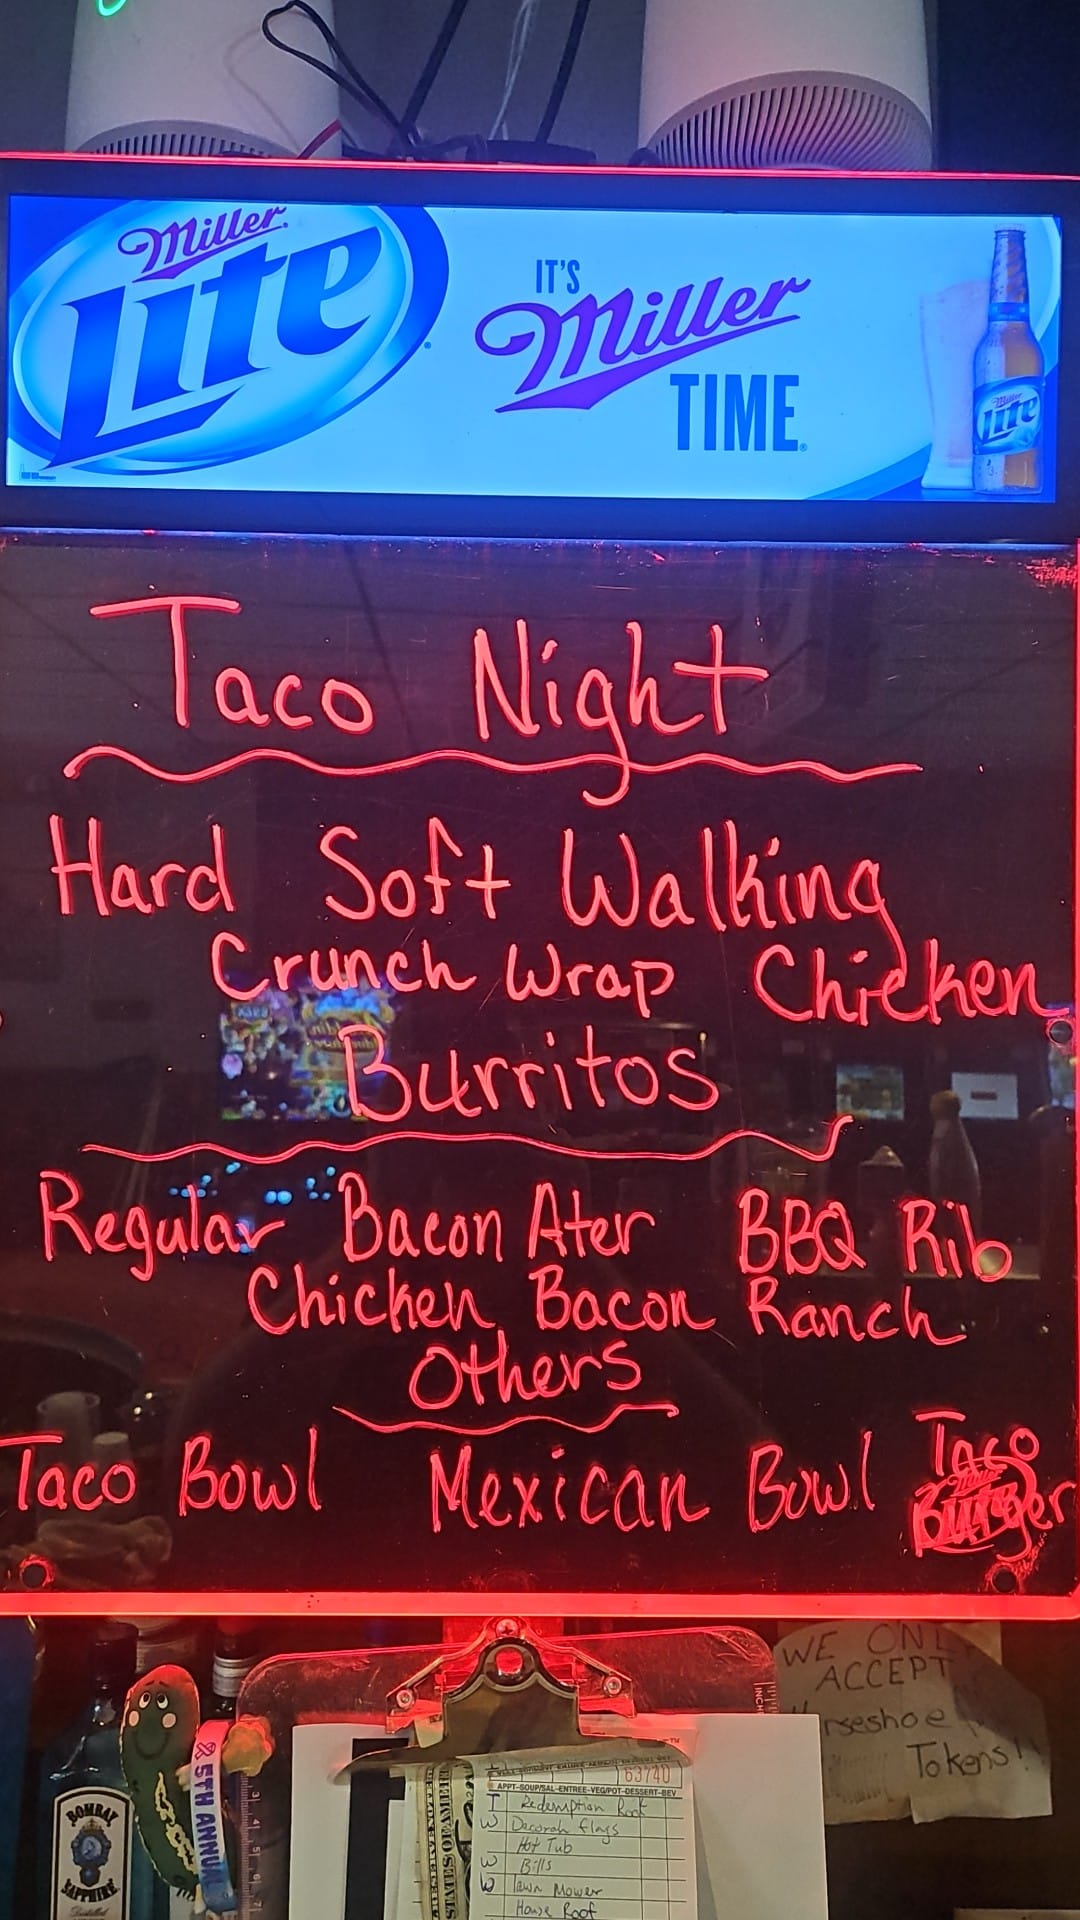 Miller
Lite
IT'S
Miller
TIME
Miller
Lite
Taco Night
Hard Soft Walking
Crunch Wrap Chicken
Burritos
Regular Bacon Ater BBQ Rib
Chicken Bacon Ranch
Others
Taco Bowl Mexican Bowl Taco
Burger
WE ONL
ACCEPT
rseshoe
Tokens!
5TH ANNUA
BOMBAY
SAPPHIRE
Distilled
INCH
63740
APPT-SOUP/SAL-ENTREE-VEG/POT-DESSERT-BEV
T Redemption Roof
W Decorah flags
Hot Tub
W Bills
W Lawn Mower
House Roof
STATES OF AMER